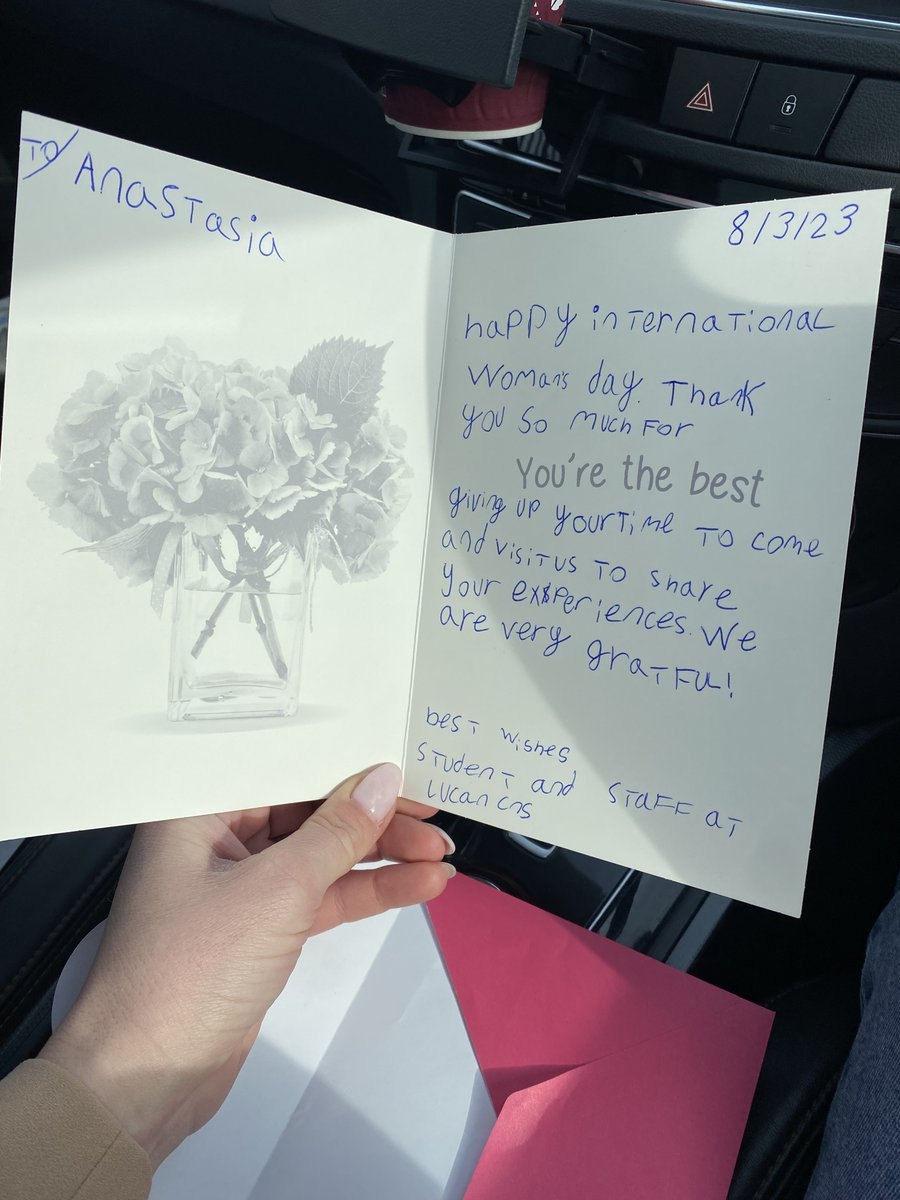 TO/ Anastasia
8/3/23
happy international
Woman's day. Thank
you so much for
You're the best
giving up your time to come
and visit us to share
your experiences. We
are very gratful!
best wishes
student and staff at
lucan cns